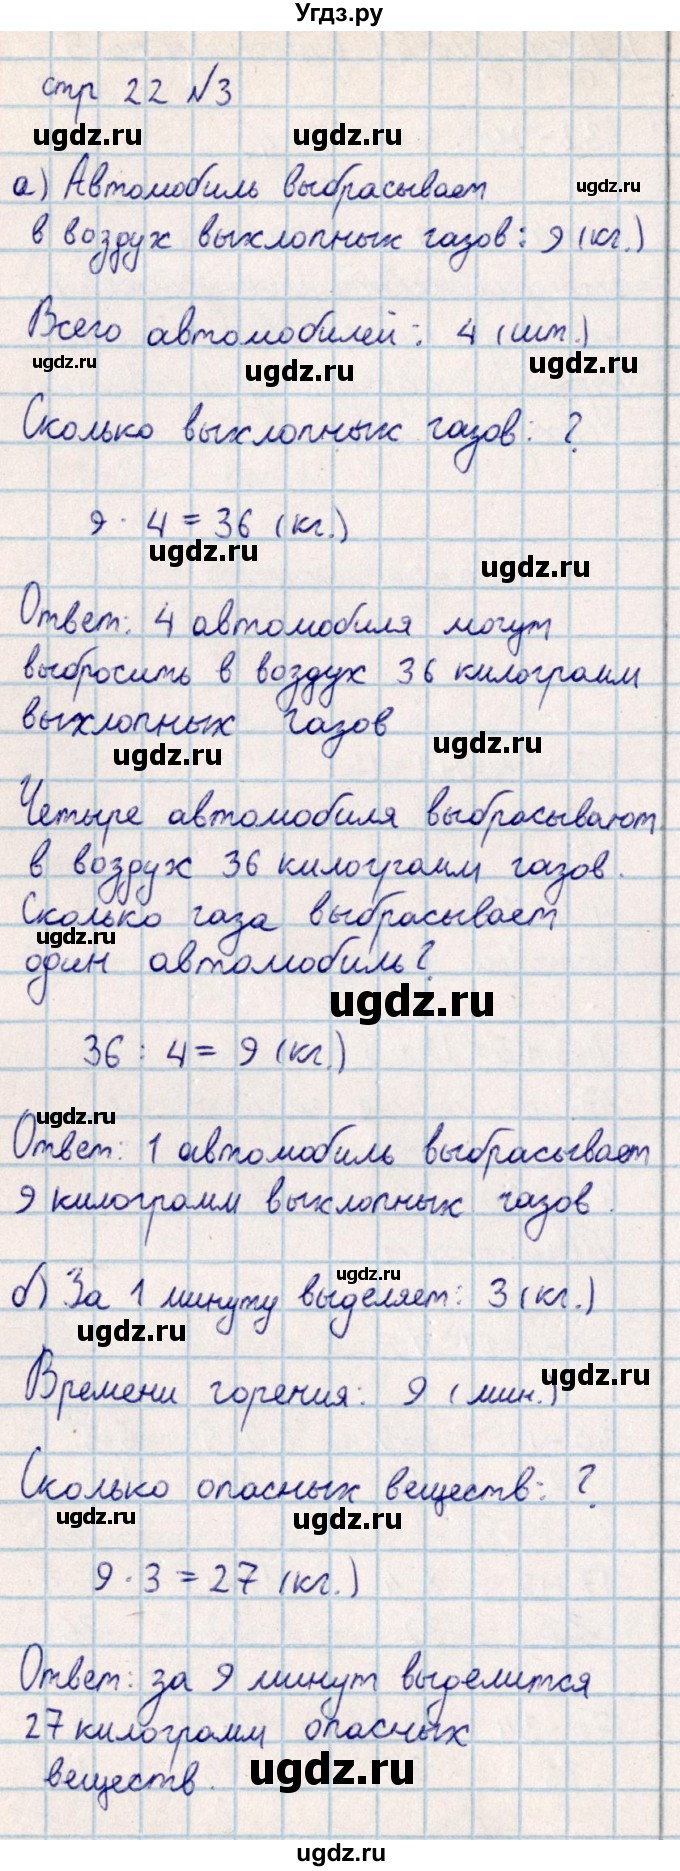 Угдз.ру
стр 22 №3
ugdz.ru ugdz.ru
а) Автомобиль выбрасывает
ugdz.ru
в воздух выхлопных газов: 9 (кг.)
Всего автомобилей: 4 (шт.)
ugdz.ru ugdz.ru ugdz.ru
Сколько выхлопных газов: ?
9 · 4 = 36 (кг.)
ugdz.ru ugdz.ru
Ответ: 4 автомобиля могут
выбросить в воздух 36 килограмм
выхлопных газов
ugdz.ru ugdz.ru
Четыре автомобиля выбрасывают
в воздух 36 килограмм газов.
Сколько газа выбрасывает
ugdz.ru
один автомобиль?
ugdz.ru
36 : 4 = 9 (кг.)
ugdz.ru
Ответ: 1 автомобиль выбрасывает
9 килограмм выхлопных газов.
ugdz.ru
б) За 1 минуту выделяет: 3 (кг.)
ugdz.ru
Времени горения: 9 (мин.)
ugdz.ru
Сколько опасных веществ: ?
ugdz.ru ugdz.ru
9 · 3 = 27 (кг.)
Ответ: за 9 минут выделится
27 килограмм опасных
веществ.
ugdz.ru
ugdz.ru